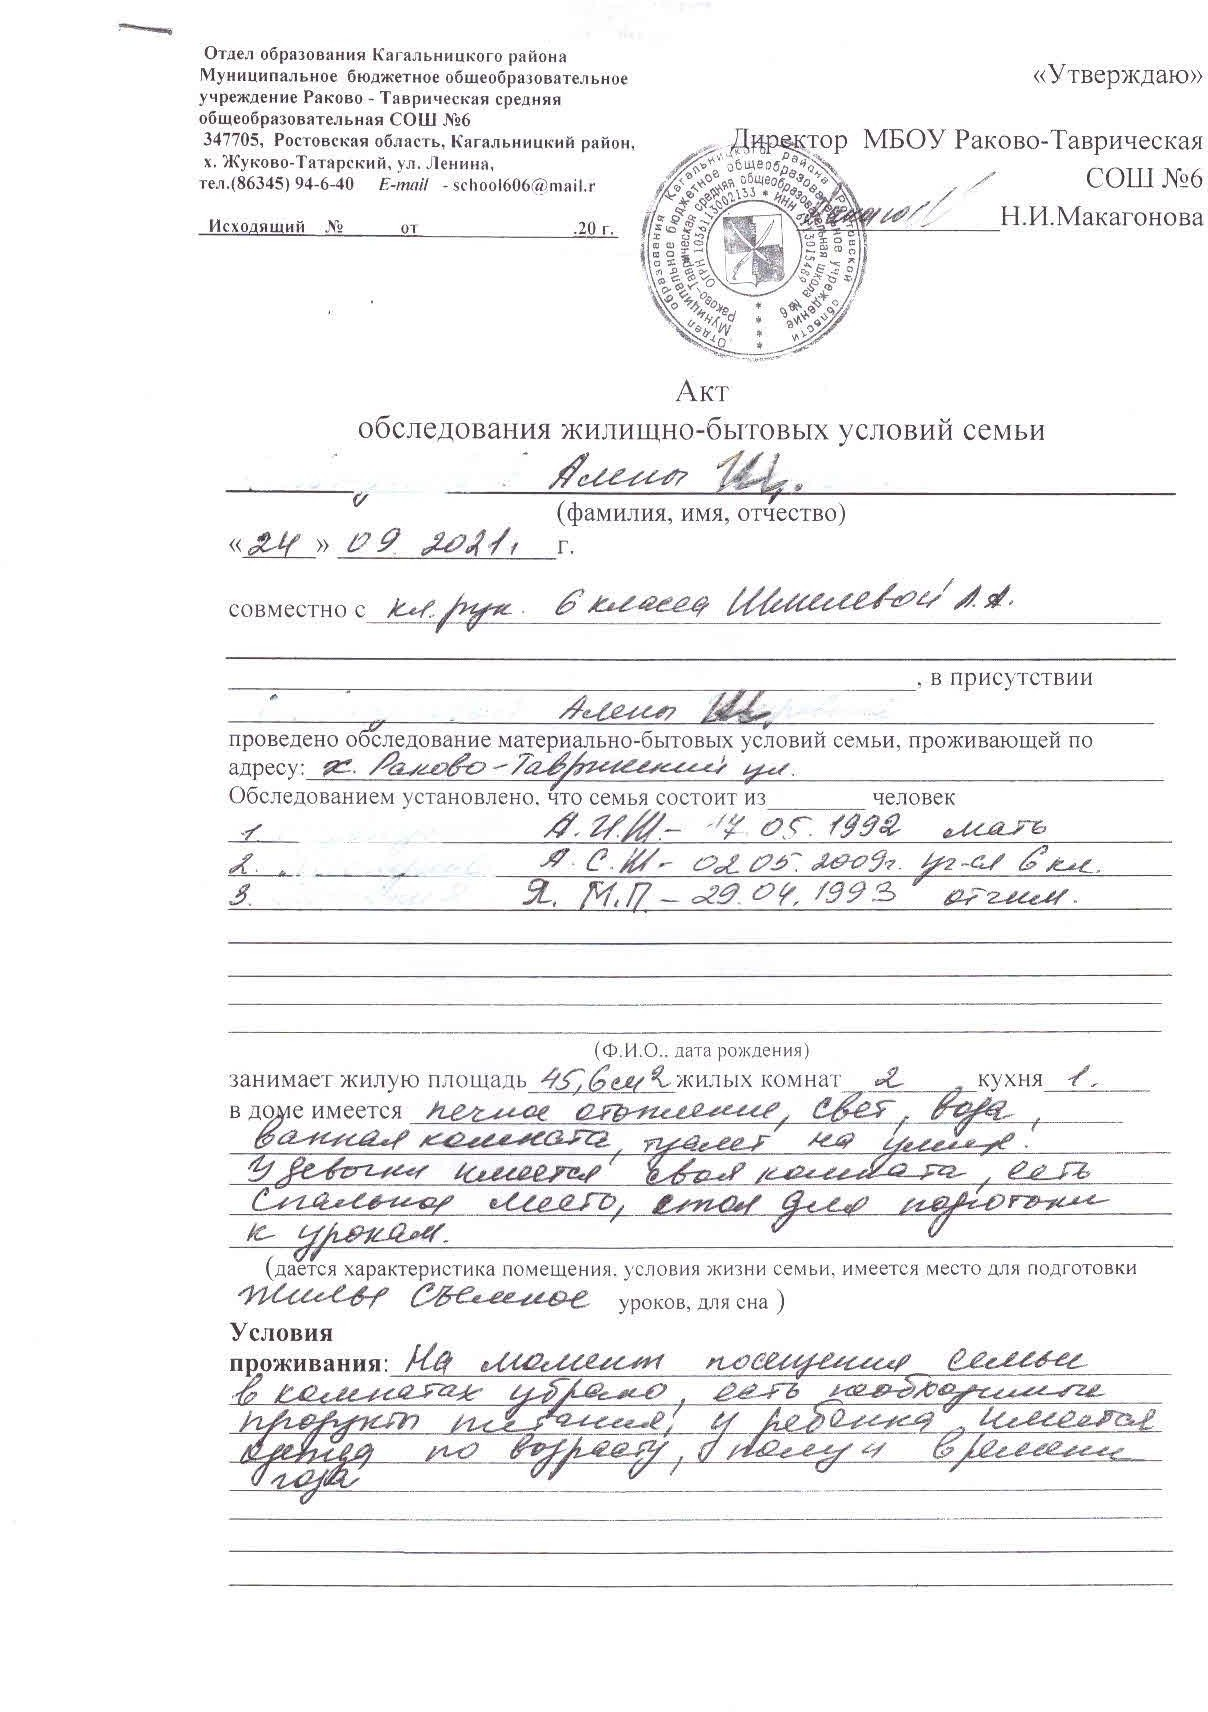 Отдел образования Кагальницкого района
Муниципальное бюджетное общеобразовательное
учреждение Раково - Таврическая средняя
общеобразовательная СОШ №6
347705, Ростовская область, Кагальницкий район,
х. Жуково-Татарский, ул. Ленина,
тел.(86345) 94-6-40 E-mail - school606@mail.r
Исходящий № от .20 г.
«Утверждаю»
Директор МБОУ Раково-Таврическая
СОШ №6
Н.И.Макагонова
Отдел образования Кагальницкого района Ростовской области
Муниципальное бюджетное общеобразовательное учреждение
Раково-Таврическая средняя общеобразовательная школа № 6
ОГРН 1036113002133 * ИНН
Акт
обследования жилищно-бытовых условий семьи
Алены Щ.
(фамилия, имя, отчество)
«24» 09 2021г. г.
совместно с кл. рук. 6 класса Шмелевой А.А.
, в присутствии
Алены Щ.
проведено обследование материально-бытовых условий семьи, проживающей по
адресу: х. Раково-Таврический ул.
Обследованием установлено, что семья состоит из человек
1. А.И.Щ.- 17.05.1992 мать
2. А.С.Щ- 02 05. 2009г. уч-ся 6 кл.
3. Я. М.П – 29.04.1993 отчим.
(Ф.И.О., дата рождения)
занимает жилую площадь 45,6см2 жилых комнат 2 , кухня 1.
в доме имеется печное отопление, свет, вода,
ванная комната, туалет на улице.
У девочки имеется своя комната, есть
спальное место, стол для подготоки
к урокам.
(дается характеристика помещения, условия жизни семьи, имеется место для подготовки
Жилье съемное уроков, для сна )
Условия
проживания: На момент посещения семьи
в комнатах убрано, есть необходимые
продукты питания, у ребенка имеется
одежда по возрасту, полу и времени
года